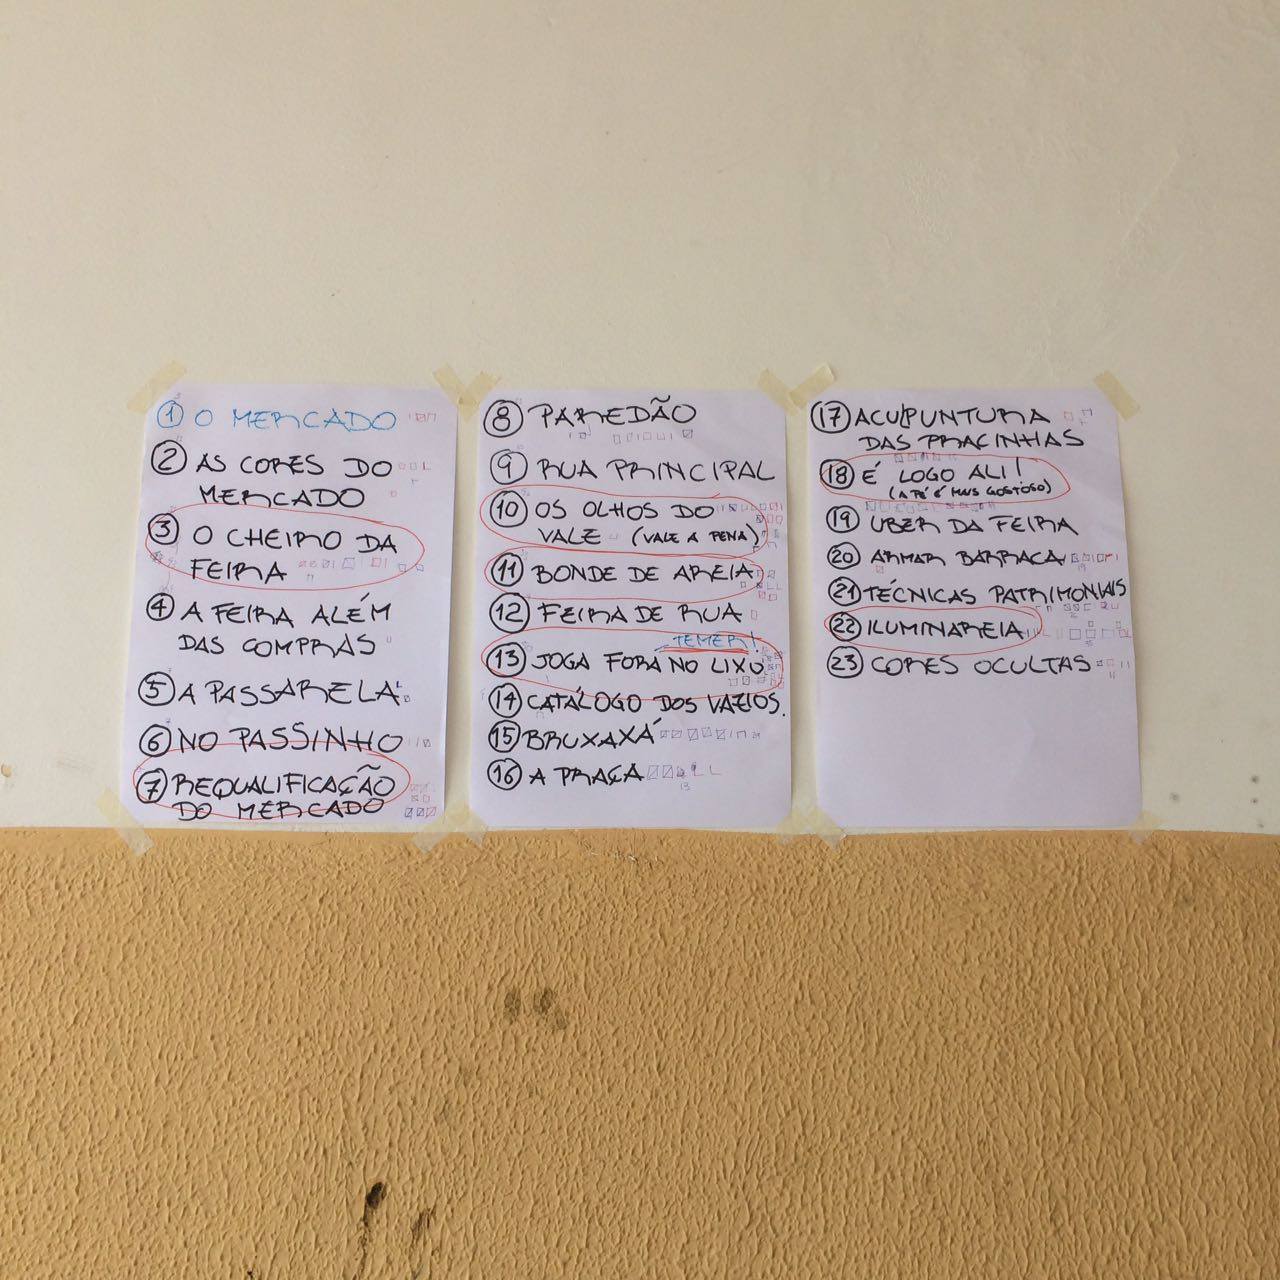 1 O MERCADO
2 AS CORES DO
MERCADO
3 O CHEIRO DA
FEIRA
4 A FEIRA ALÉM
DAS COMPRAS
5 A PASSARELA
6 NO PASSINHO
7 REQUALIFICAÇÃO
DO MERCADO
8 PAREDÃO
9 RUA PRINCIPAL
10 OS OLHOS DO
VALE (VALE A PENA)
11 BONDE DE AREIA
12 FEIRA DE RUA
TEMER!
13 JOGA FORA NO LIXO
14 CATÁLOGO DOS VAZIOS.
15 BRUXAXÁ
16 A PRAÇA
13
17 ACUPUNTURA
DAS PRACINHAS
18 É LOGO ALI!
(A PÉ É MAIS GOSTOSO)
19 UBER DA FEIRA
20 ARMAR BARRACA
21 TÉCNICAS PATRIMONIAIS
22 ILUMINAREIA
23 CORES OCULTAS